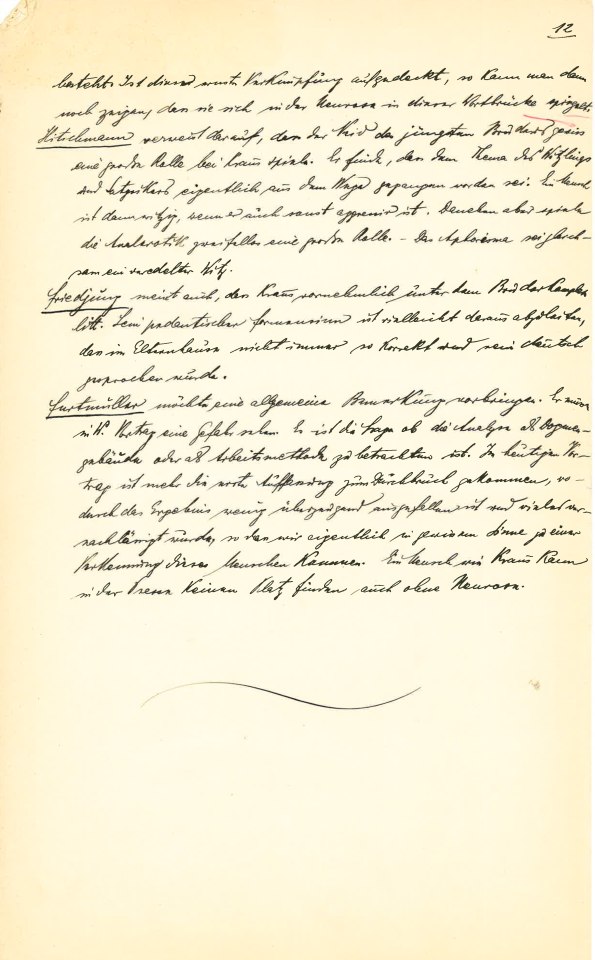 12
besteht. Ist diese erste Verknüpfung aufgedeckt, so kann man dann
noch zeigen, dass sie sich in der Neurose in dieser Wortbrücke spiegelt.
Hitschmann verweist darauf, dass der Neid des jüngsten Bruders gewiss
eine grosse Rolle bei Kraus spiele. Er finde, dass dem Thema des Witzlings
und Satyrikers eigentlich aus dem Wege gegangen worden sei. Ein Mensch
ist dann witzig, wenn er auch sonst aggressiv ist. Daneken aber spiele
die Analerotik zweifellos eine grosse Rolle. – Das Aphorisma sei gleich-
sam ein veredelter Witz.
Friedjung meint auch, dass Kraus vornehmlich unter dem Bruderkomplex
litt. Sein pedantischer Formensinn ist vielleicht daraus abzuleiten,
dass im Elternhause nicht immer so korrekt und rein deutsch
gesprochen wurde.
Furtmüller möchte eine allgemeine Bemerkung vorbringen. Er müsse
in W. Vortrag eine Gefahr sehen. Es ist die Frage ob die Analyse als Dogmen-
gebäude oder als Arbeitsmethode zu betrachten ist. Im heutigen Vor-
trag ist mehr die erste Auffassung zum Durchbruch gekommen, wo-
durch das Ergebnis wenig überzeugend ausgefallen ist und vieles ver-
nachlässigt wurde, so dass wir eigentlich in gewissem Sinne zu einer
Verkennung dieses Menschen kommen. Ein Mensch wie Kraus kann
in der Presse keinen Platz finden auch ohne Neurose.